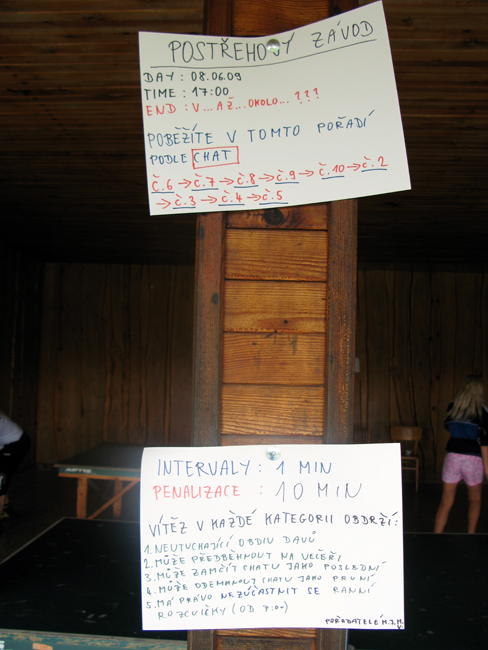 POSTŘEHOVÝ ZÁVOD
DAY : 08.06.09
TIME : 17:00
END : V... AŽ... OKOLO... ???
POBĚŽÍTE V TOMTO POŘADÍ
PODLE CHAT
Č.6 → Č.7 → Č.8 → Č.9 → Č.10 → Č.2
→ Č.3 → Č.4 → Č.5
INTERVALY : 1 MIN
PENALIZACE : 10 MIN
VÍTĚZ V KAŽDÉ KATEGORII OBDRŽÍ:
1. NEUTUCHAJÍCÍ OBDIV DAVŮ
2. MŮŽE PŘEDBĚHNOUT NA VEČEŘI
3. MŮŽE ZAMČÍT CHATU JAKO POSLEDNÍ
4. MŮŽE ODEMKNOUT CHATU JAKO PRVNÍ
5. MÁ PRÁVO NEZÚČASTNIT SE RANNÍ
ROZCVIČKY (OD 7:00)
POŘADATELÉ